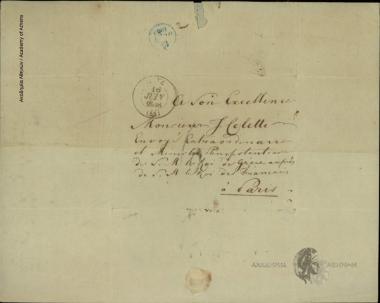 Ακαδημία Αθηνών / Academy of Athens
16
A Son Excellence
Monsieur J. Colette
Envoyé Extraordinaire
et Ministre Plenipotentiaire
de S. M. le Roi de Grèce auprès
de S. M. le Roi des Francais
à Paris
ΑΚΑΔΗΜΙΑ ΑΘΗΝΩΝ